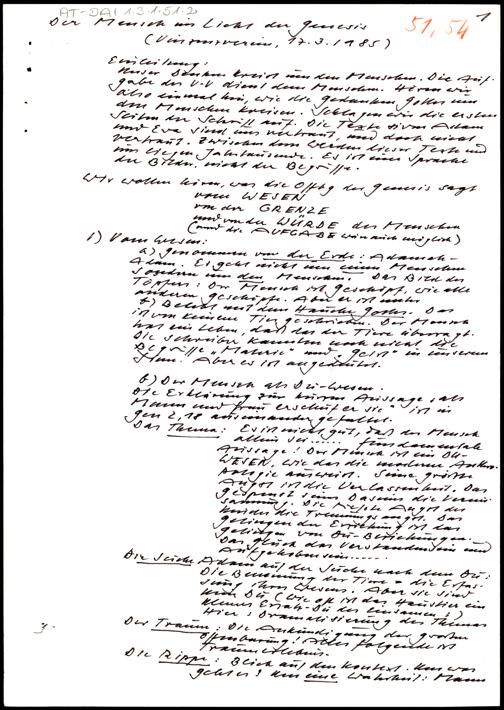 AT-DAI 1.3.1.51.2
51, 54
1
Der Mensch im Licht der Genesis
(Vinzenzverein, 17.3.1985)
Einleitung:
Unser Denken kreist um den Menschen. Die Auf-
gabe des V-V dient dem Menschen. Hören wir
also einmal hin, wie die Gedanken Gottes um
den Menschen kreisen. Schlagen wir die ersten
Seiten der Schrift auf. Die Texte von Adam
und Eva sind uns vertraut und doch nicht
vertraut. Zwischen dem Werden dieser Texte und
uns liegen Jahrtausende. Es ist eine Sprache
der Bilder, nicht der Begriffe.
Wir wollen hören, was die Offbg der Genesis sagt
vom WESEN
von der GRENZE
und von der WÜRDE des Menschen
(und die AUFGABE wie möglich)
1) Vom Wesen:
a) Genommen von der Erde: Adamah-
Adam. Es geht nicht um einen Menschen
sondern um den Menschen. Das Bild des
Töpfers: Der Mensch ist Geschöpf, wie alle
anderen Geschöpfe. Aber er ist mehr
b) Belebt mit dem Hauche Gottes. Das
ist von keinem Tier geschrieben. Der Mensch
hat ein Leben, das das der Tiere überragt.
Die Schreiber kannten noch nicht die
Begriffe "Materie" und "Geist" in unserem
Sinn. Aber es ist angedeutet.
b) Der Mensch als Du-Wesen.
Die Erklärung zur kurzen Aussage "als
Mann und Frau erschuf er sie" ist in
Gen 2,18 auseinandergefaltet.
Das Thema: Es ist nicht gut, daß der Mensch
allein sei..... Fundamentale
Aussage! Der Mensch ist ein DU-
WESEN, wie das die moderne Anthro-
pologie ausweist. Seine größte
Angst ist die Verlassenheit. Das
Gespenst seines Daseins die Verein-
samung. Die tiefste Angst des
Kindes die Trennungsangst. Das
Gelingen der Erziehung ist das
Gelingen von Du-Beziehungen.
Das Glück das Verstandensein und
Aufgehobensein.....
Die Suche Adam auf der Suche nach dem Du:
Die Benennung der Tiere = die Erfas-
sung ihres Wesens. Aber sie sind
kein Du (Wie oft ist das Haustier ein
kleines Ersatz-Du des Einsamen!)
Hier: Dramatisierung des Themas
Der Traum: Die Ankündigung der großen
Offenbarung! Alles folgende ist
Traumerlebnis.
Die Rippe: Blick auf den Kontext. Um was
geht es? Um eine Wahrheit: Mann